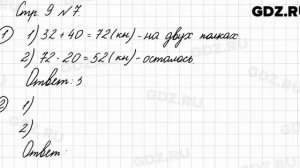 GDZ.RU
Стр. 9 № 7.
1) 1) 32 + 40 = 72 (кн) - на двух полках
2) 72 - 20 = 52 (кн) - осталось.
Ответ: 5
2) 1)
2)
Ответ: